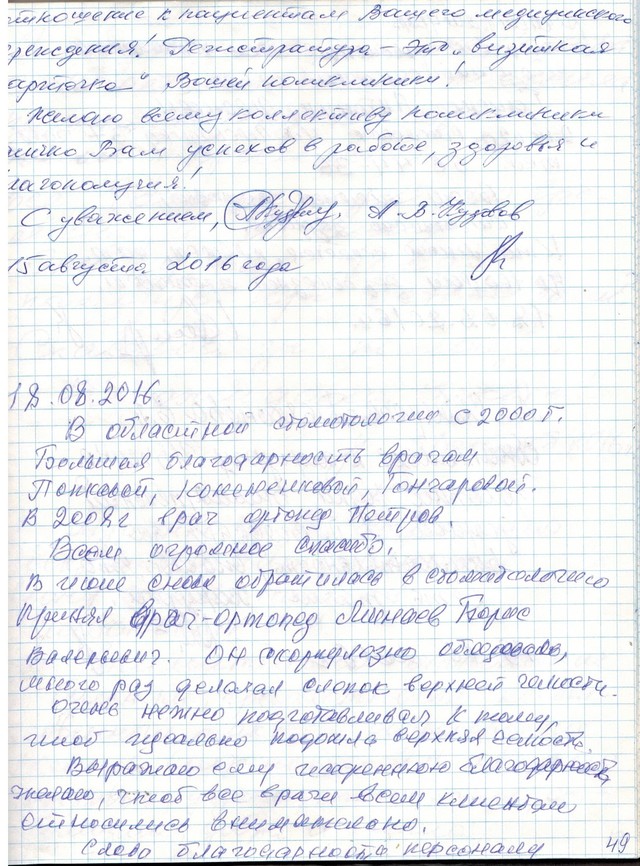 тношение к пациентам Вашего медицинского
реждения! Регистратура – это „визитная
арточка" Вашей поликлиники!
Желаю всему коллективу поликлиники
лично Вам успехов в работе, здоровья и
лагополучия!
С уважением, А.В.
15 августа 2016 года
18.08.2016.
В областной стоматологии с 2000г.
Большая благодарность врачам
Попковой, Гончаровой.
В 2008г врач ортопед Петров.
Всем огромное спасибо.
В июле снова обратилась в стоматологию
Принял врач-ортопед Минаев Борис
Валерьевич. Он скорпулёзно обследовал,
много раз делал слепок верхней челюсти.
Очень нежно подготавливал к тому,
чтоб идеально подошла верхняя челюсть.
Выражаю ему искреннюю благодарность,
желаю, чтоб все врачи всем клиентам
относились внимательно.
Слово благодарности персоналу
49